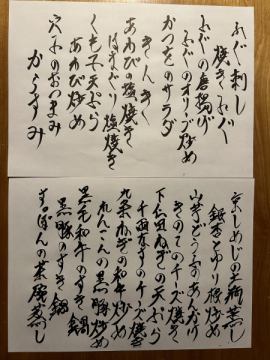 ふぐ刺し
焼きふぐ
ふぐの唐揚げ
ふぐのオリーブ炒め
かつをのサラダ
きんき
あわびの塩焼き
はまぐり塩焼き
くも子天ぷら
あわび炒め
穴子のおつまみ
からすみ
京しめじの土瓶蒸し
銀杏とゆり根炒め
山芋どうふのあんかけ
きのこのチーズ焼き
下仁田ねぎの天ぷら
千両なすのチーズ焼き
九条ねぎの和牛炒め
れんこんの黒豚炒め
黒毛和牛のすき鍋
黒豚のすき鍋
すっぽんの茶碗蒸し